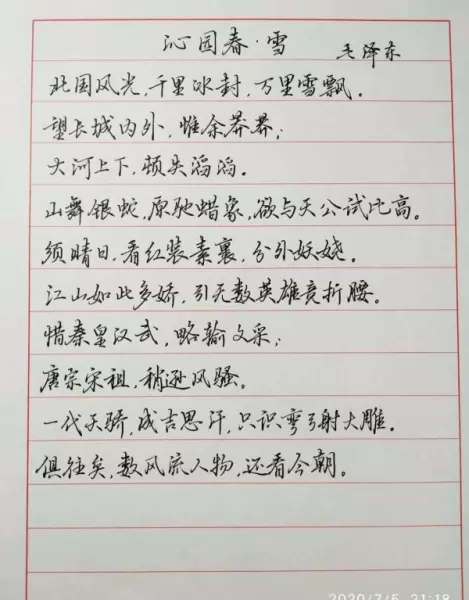 沁园春·雪 毛泽东
北国风光,千里冰封,万里雪飘。
望长城内外,惟余莽莽;
大河上下,顿失滔滔。
山舞银蛇,原驰蜡象,欲与天公试比高。
须晴日,看红装素裹,分外妖娆。
江山如此多娇,引无数英雄竞折腰。
惜秦皇汉武,略输文采;
唐宗宋祖,稍逊风骚。
一代天骄,成吉思汗,只识弯弓射大雕。
俱往矣,数风流人物,还看今朝。
2020/7/5 21:18